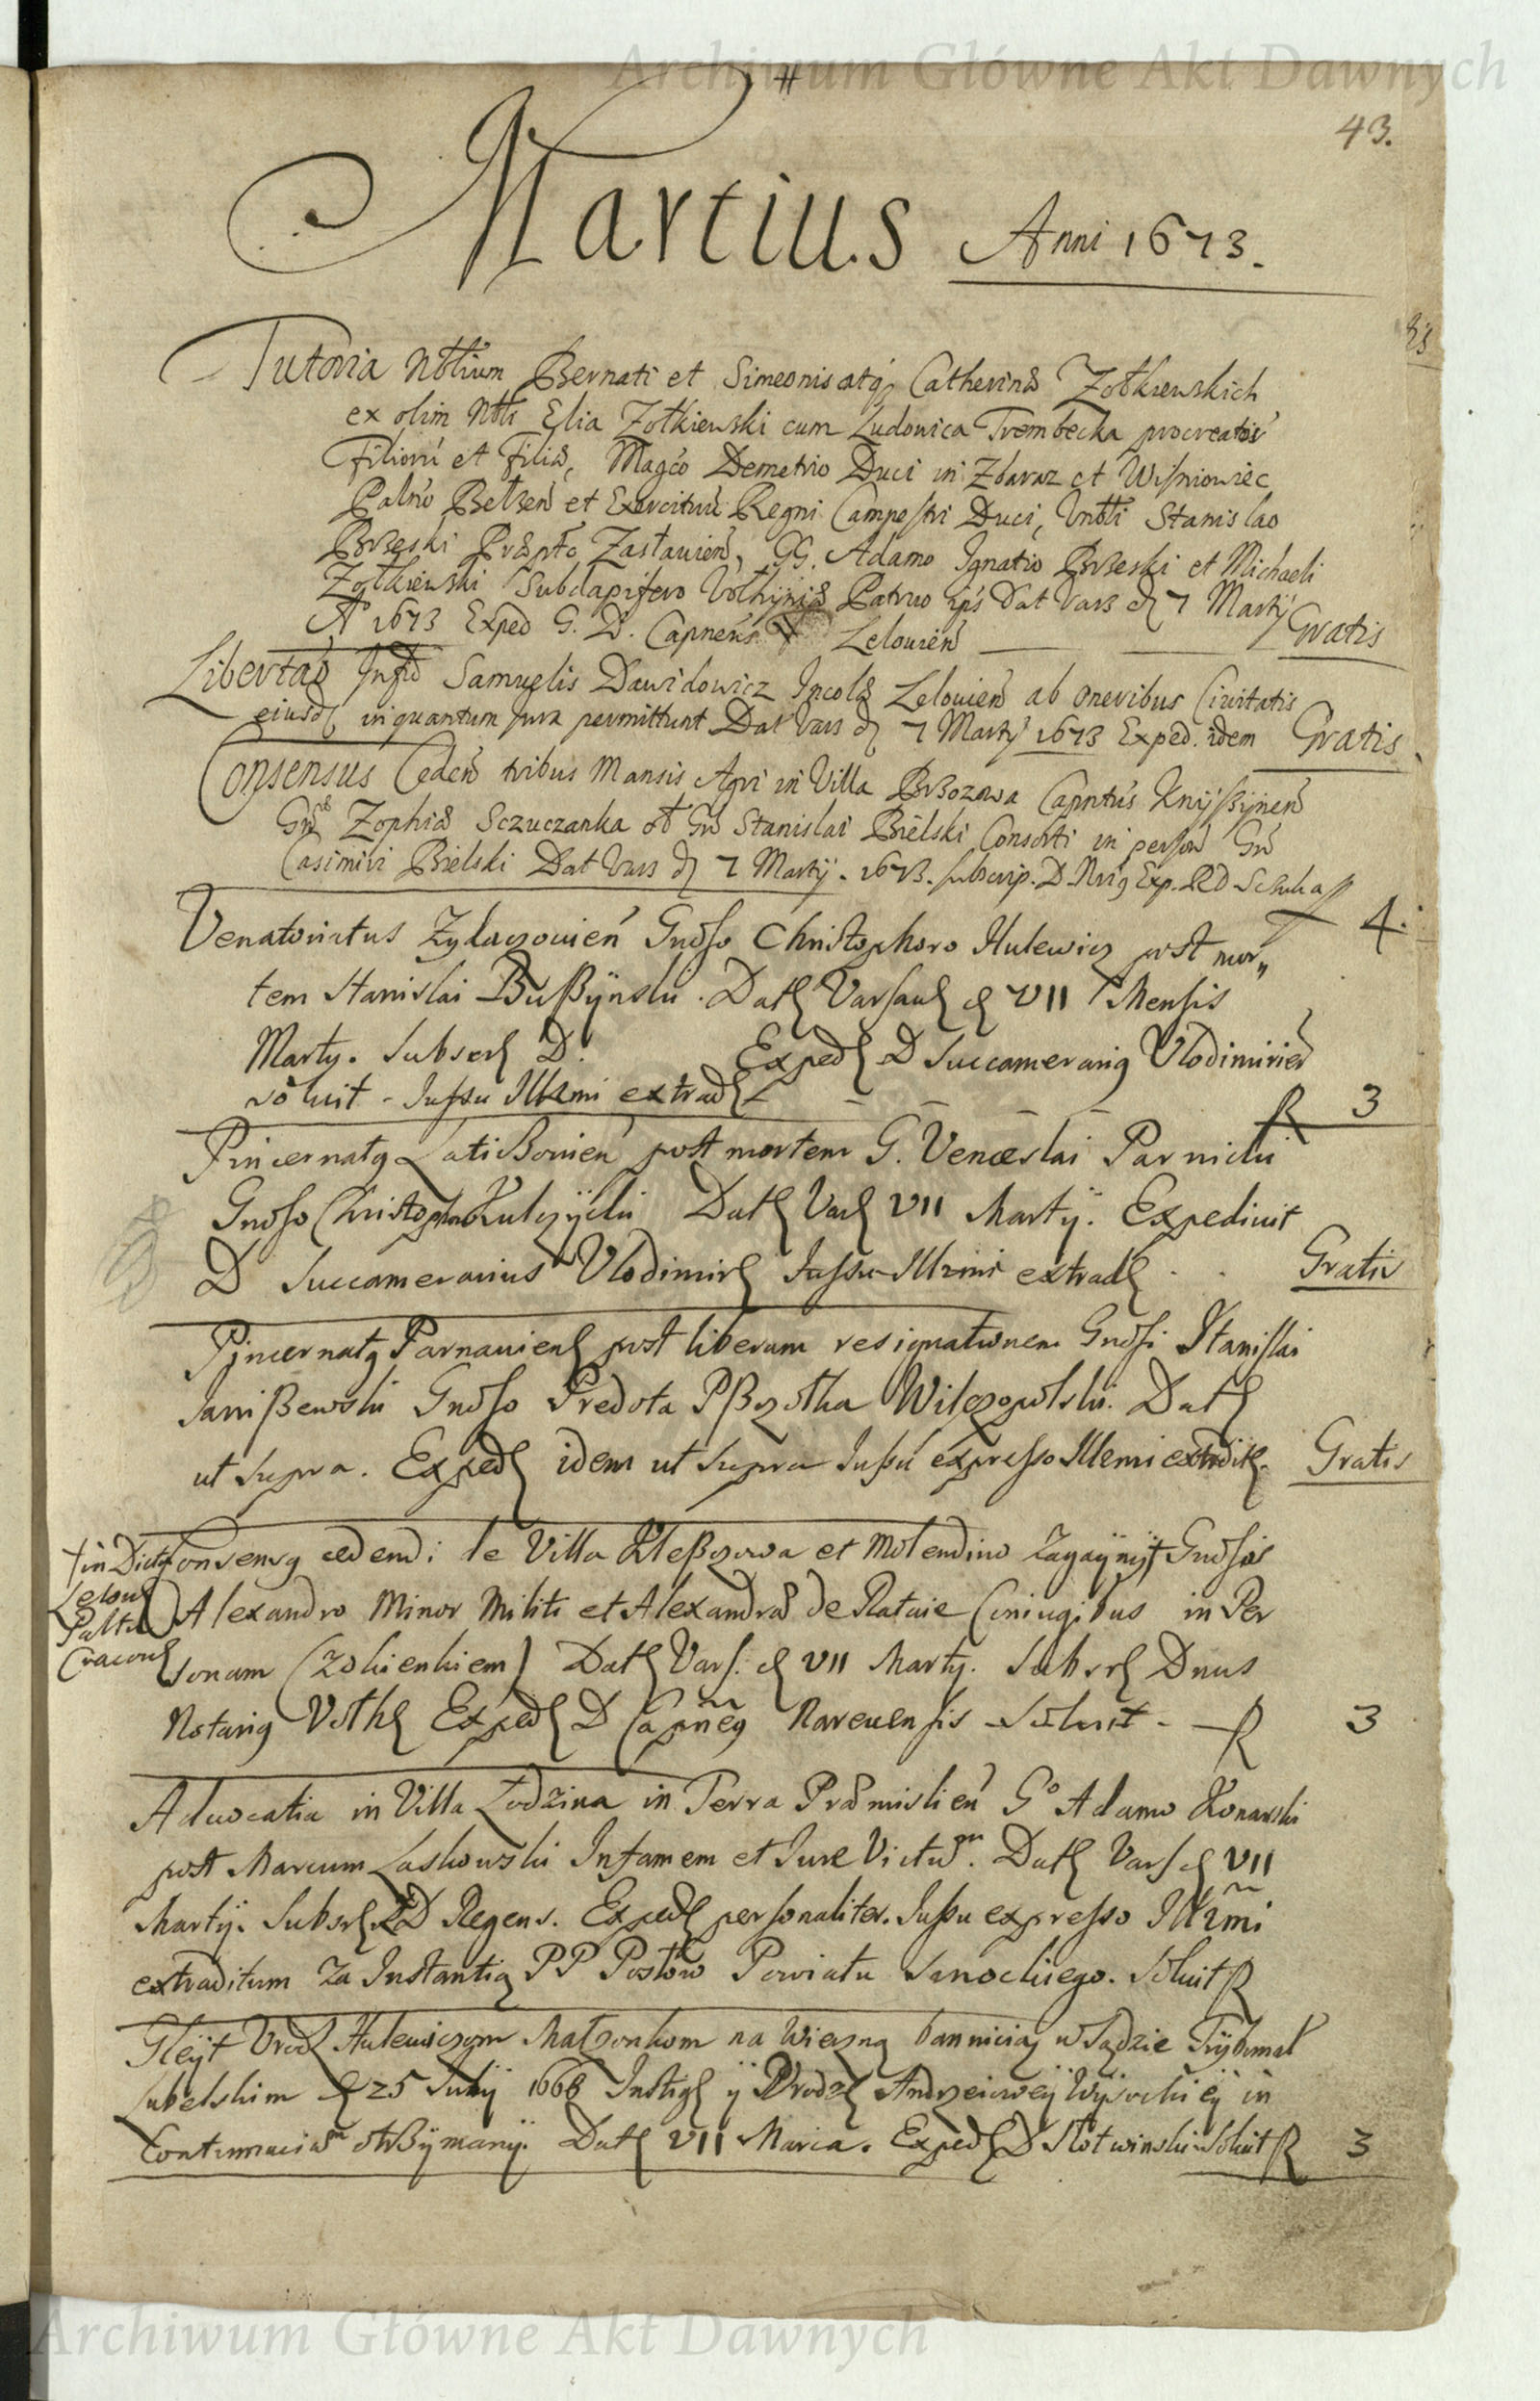 Archiwum Główne Akt Dawnych
#
43.
Martius Anni 1673.
Tutoria Nobilium Bernati et Simeonis atq Catherinæ Zołkiewskich
ex olim Nobli Elia Zołkiewski cum Ludovica Trembecka procreator
Filiorũ et Filiæ, Magco Demetrio Duci in Zbaraz et Wisniowiec
Palno Belzen et Exercituũ Regni Campestri Duci, Stanislao
Brzeski Præpto Zasłavien, GG. Adamo Ignatio Brzeski et Michaeli
Zołkiewski Subdapifero Vołhyniæ Patruo Dat Vars d 7 Martij
A 1673 Exped G. D. Capneus Lelovien Gratis
Libertas Infid Samuelis Dawidowicz Incolæ Lelovien ab oneribus Civitatis
eiusd in quantum Jura permittunt Dat Vars d 7 Martij 1673 Exped. idem Gratis
Consensus Ceden tribus Mansis Agri in Villa Brzozowa Capntus Knyszynen
Gnæ Zophiæ Sczuczanka Gn Stanislai Bielski Consorti in person Gn
Casimiri Bielski Dat Vars d 7 Martij. 1673. subscrip. D. Exp. RD 4.
Venatoriatus Zydaczovien Gnoso Christophoro Hulewicz post mor„
tem Stanislai Buszynski. Dat Varsav d VII Mensis
Martij. Subscr D. Exped D Succamerarig Vlodimirien
soluit - Jussu Illrmi extrad R 3
Pincernatq Laticzovien post mortem G. Venceslai Parnicki
Gnoso Christophoro Kulczycki Dat Vars VII Martij. Expedivit
D Succamerarius Vlodimir Jussu Illrmi extrad Gratis
Pincernatq Parnavien post liberam resignationem Gnosi Stanislai
Janiszewski Gnoso Predota Pszotka Wilczopolski. Dat
ut supra. Exped idem ut supra Jussu expresso Illrmi extradit. Gratis
† in Lelov Palt Cracov
Consensq cedendi de Villa Kleszczowa et Molendino † Gnosis
Alexandro Minor Militi et Alexandræ de Rataie Coniugibus in Per
sonam (Zokienkiem) Dat Vars. d VII Martij. Subscr Dnus
Notarig Vołh Exped D Capneg Narevensis Soluit - R 3
Advocatia in Villa Lodzina in Terra Præmislien G° Adamo Konarski
post Marcum Laskowski Infamem et Jure Victum. Dat Vars d VII
Martij. Subscr RD Regens. Exped personaliter. Jussu expresso Illrmi
extraditum za Instantią PP Posłow Powiatu Sanockiego. Soluit R
Gleyt Urod Hulewiczom Małzonkom na Wieczną bannicią w Sądzie Trybunał
Lubelskim d 25 July 1668 Instig y Urodz Andrzeiowey Wysockiey in
Contumaciam otrzymany. Dat VII Marca. Exped D Słotwinski Soluit R 3
Archiwum Główne Akt Dawnych